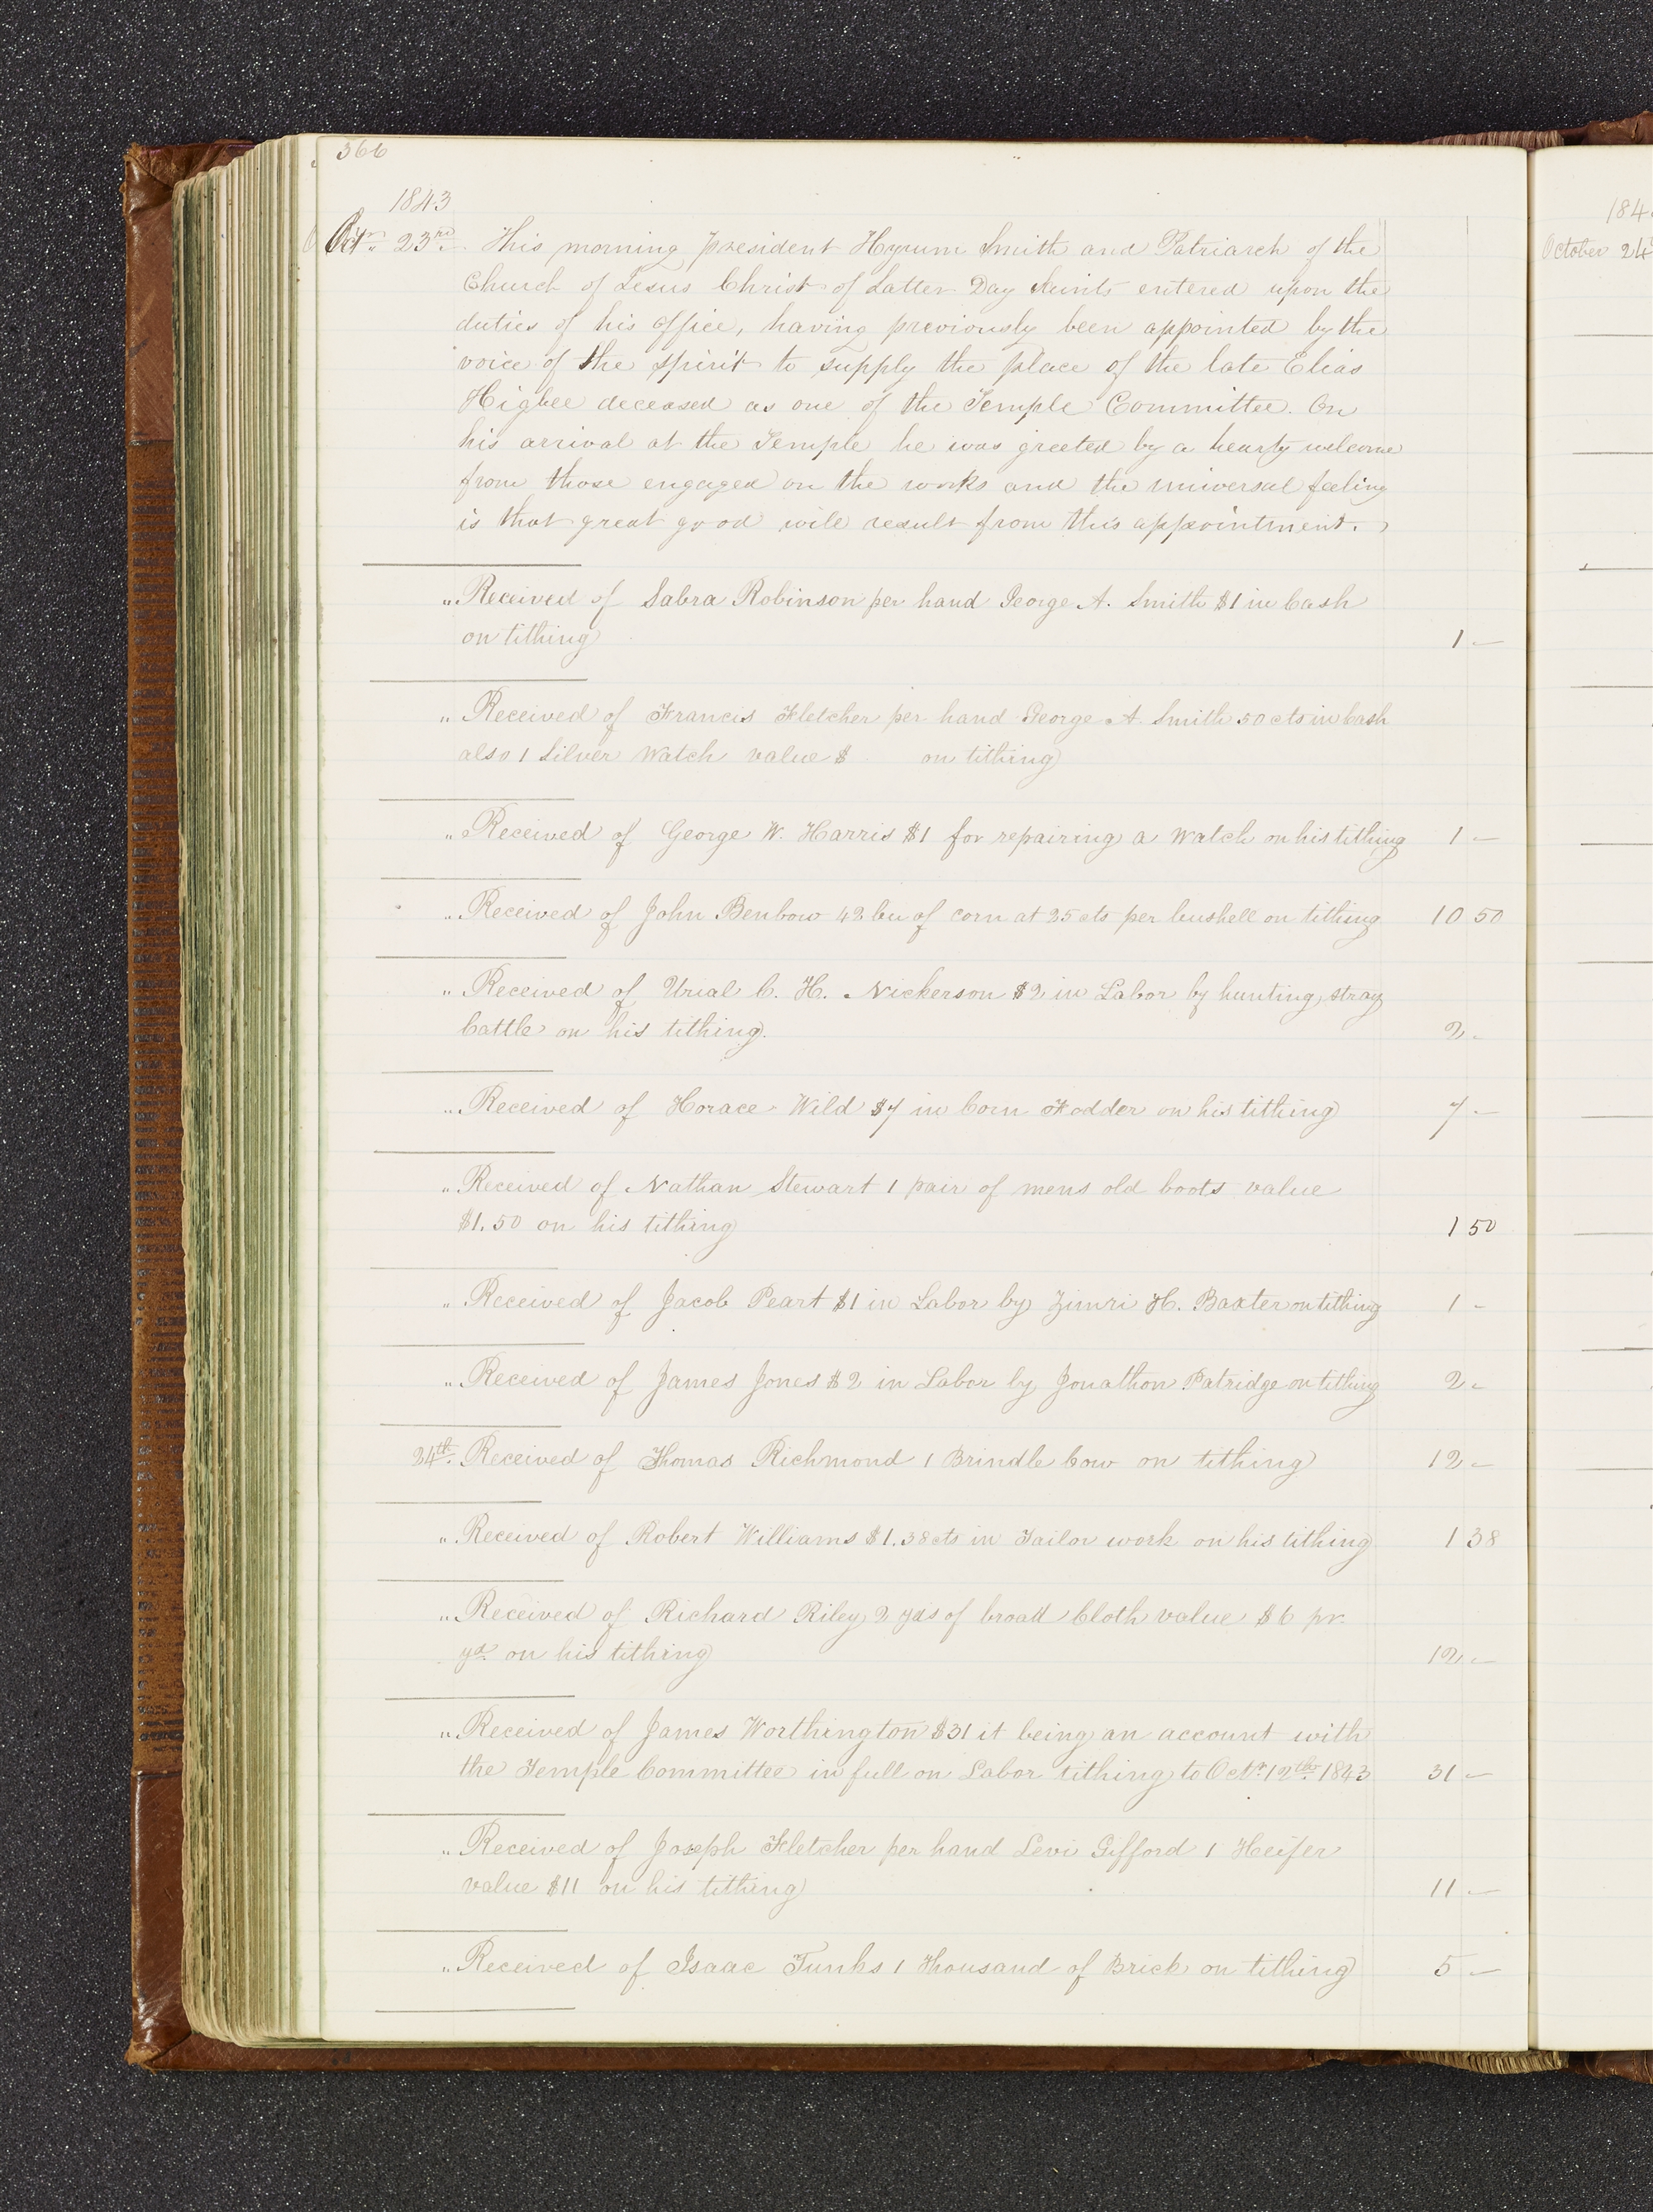 366
1843
Octr. 23rd. This morning president Hyrum Smith and Patriarch of the
Church of Jesus Christ of Latter Day Saints entered upon the
duties of his office, having previously been appointed by the
voice of the spirit to supply the place of the late Elias
Higbee deceased as one of the Temple Committee. On
his arrival at the Temple he was greeted by a hearty welcome
from those engaged on the works and the universal feeling
is that great good will result from this appointment.
" Received of Sabra Robinson per hand George A. Smith $1 in Cash
on tithing 1 —
" Received of Francis Fletcher per hand George A. Smith 50 cts in Cash
also 1 Silver Watch value $ on tithing
" Received of George W. Harris $1 for repairing a Watch on his tithing 1 —
" Received of John Benbow 42 bu of corn at 25 cts per bushell on tithing 10 50
" Received of Urial C. H. Nickerson $2 in Labor by hunting stray
Cattle on his tithing. 2 -
" Received of Horace Wild $7 in Corn Fodder on his tithing 7 —
" Received of Nathan Stewart 1 pair of mens old boots value
$1.50 on his tithing 1 50
" Received of Jacob Peart $1 in Labor by Zimri H. Baxter on tithing 1 -
" Received of James Jones $2 in Labor by Jonathon Patridge on tithing 2 -
24th. Received of Thomas Richmond 1 Brindle Cow on tithing 12 —
" Received of Robert Williams $1.38 cts in Tailor work on his tithing 1 38
" Received of Richard Riley 2 yds of broad Cloth value $6 pr.
yd. on his tithing 12 —
" Received of James Worthington $31 it being an account with
the Temple Committee in full on Labor tithing to Octr. 12th. 1843 31 —
" Received of Joseph Fletcher per hand Levi Gifford 1 Heifer
value $11 on his tithing 11 —
" Received of Isaac Funks 1 Thousand of Brick on tithing 5 —
184
October 24